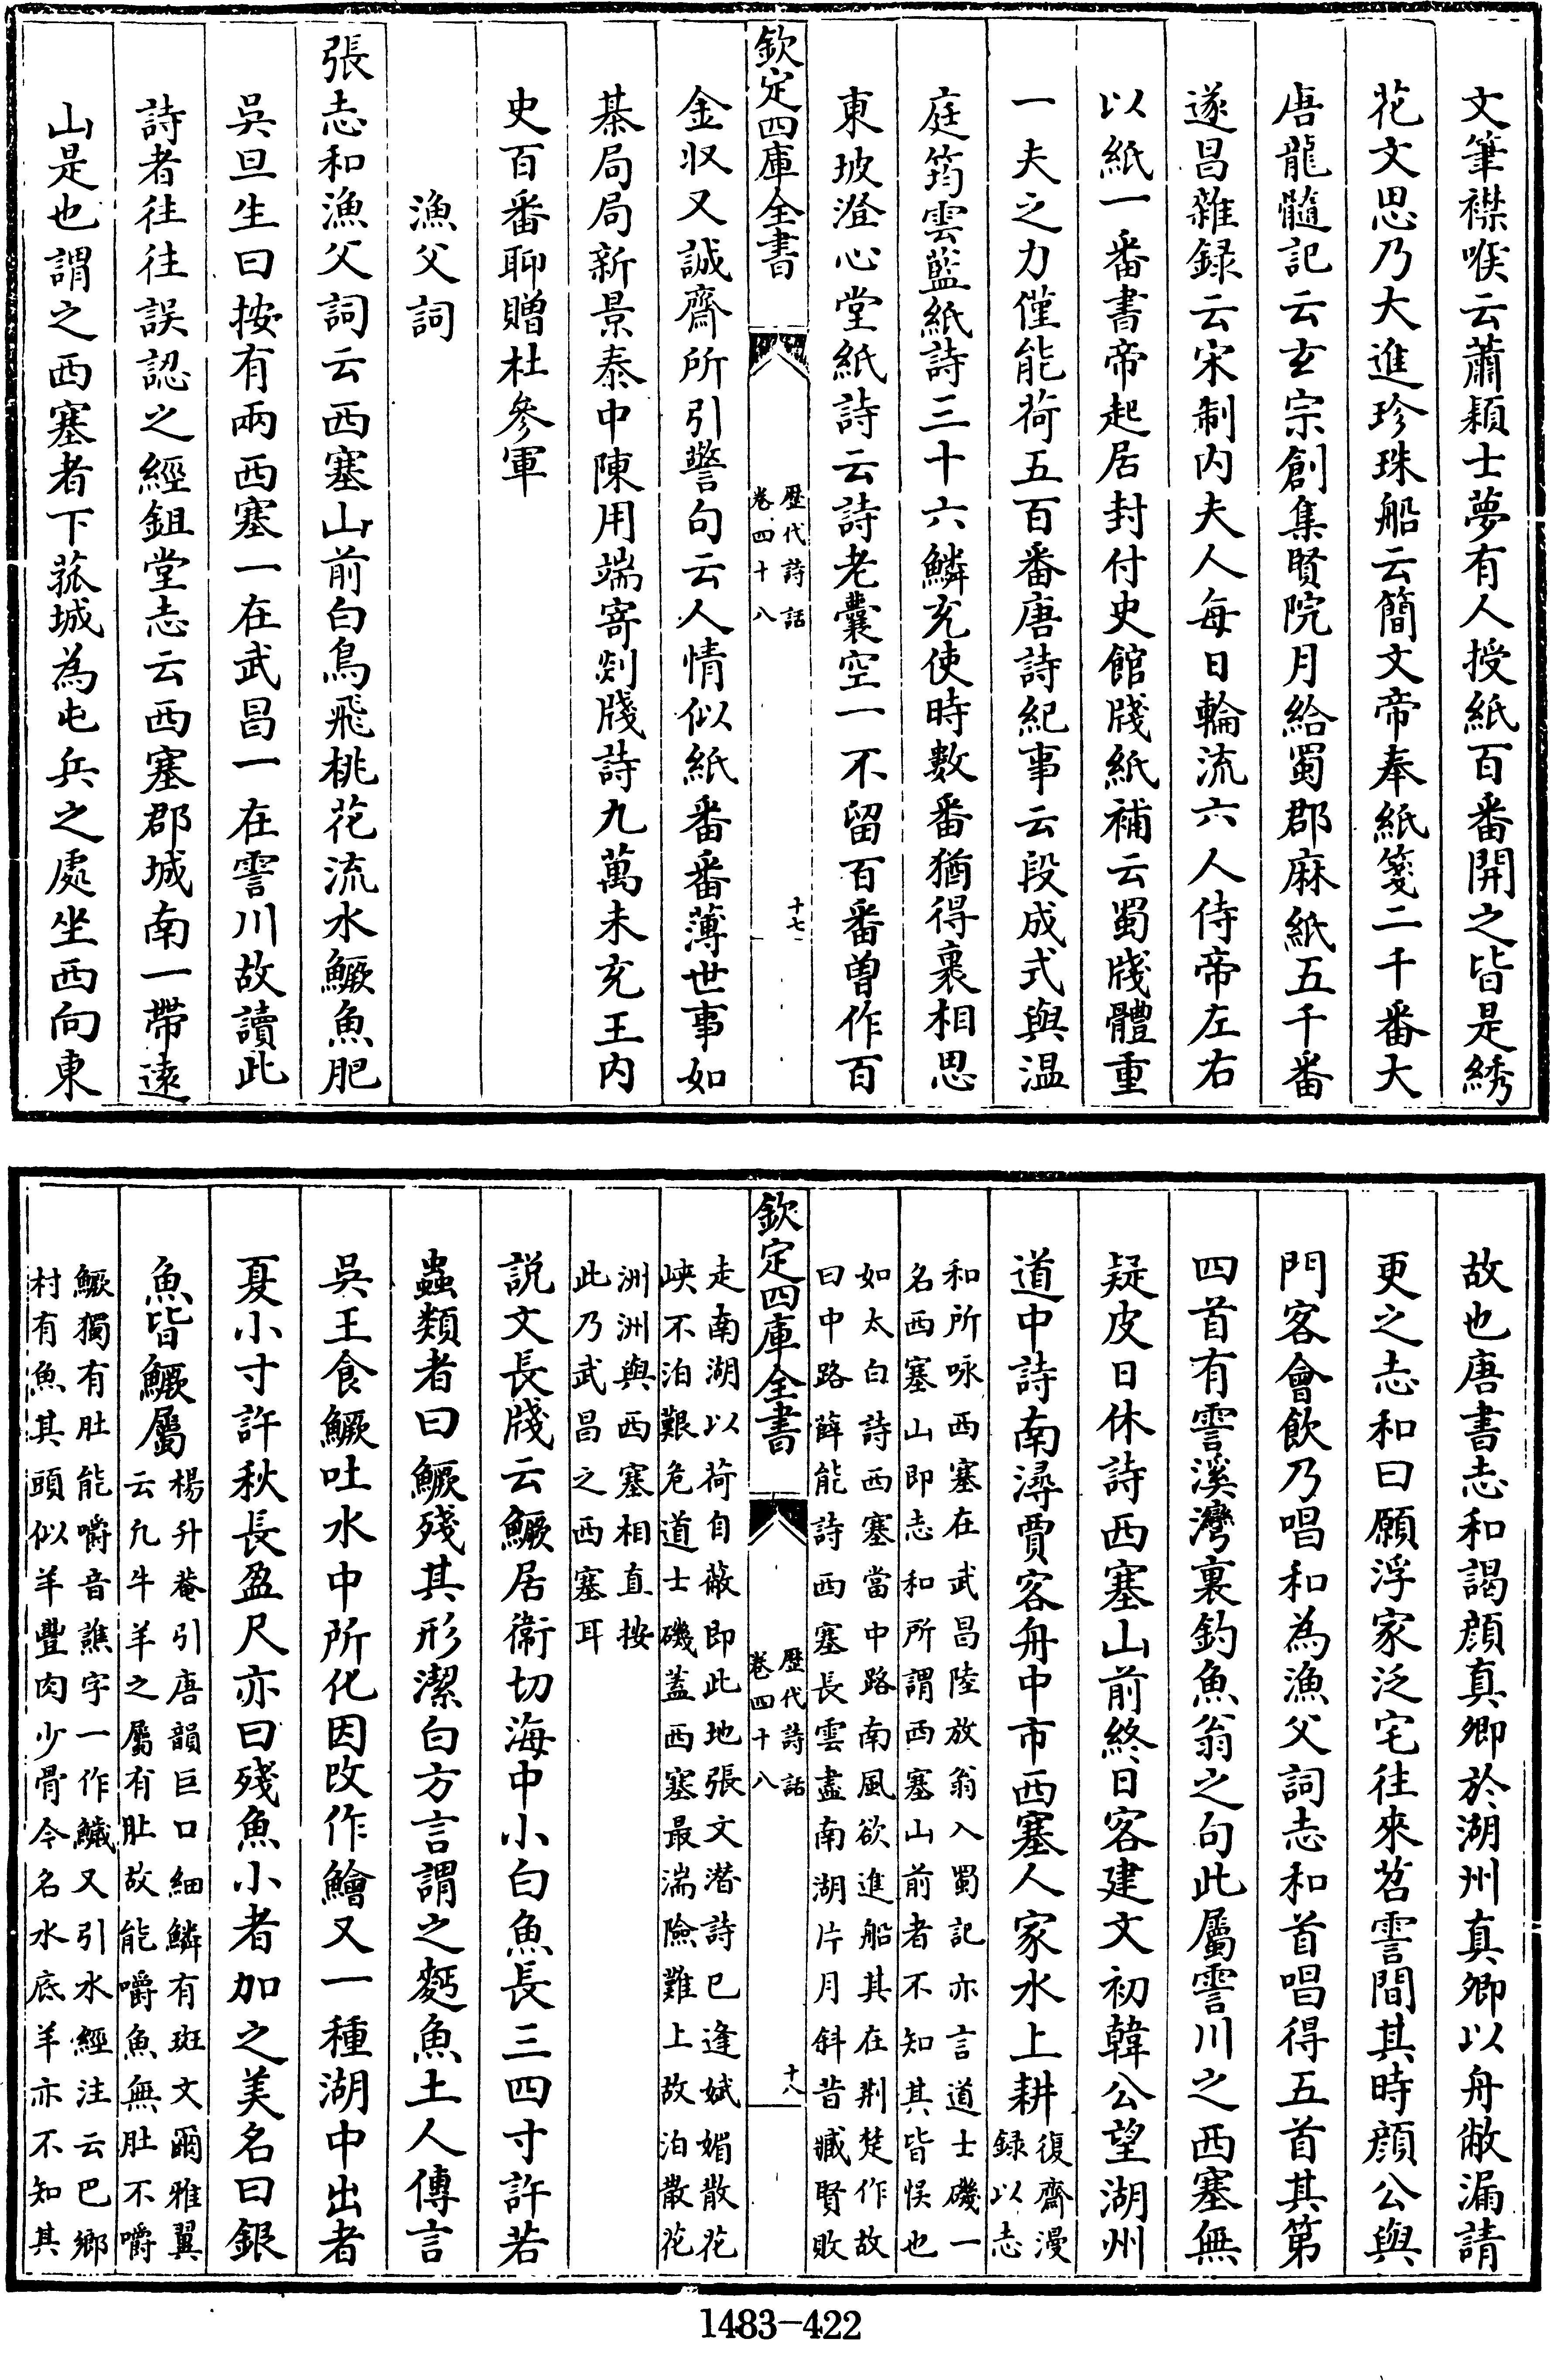 文筆襟喉云蕭穎士夢有人授紙百番開之皆是綉
花文思乃大進珍珠船云簡文帝奉紙箋二千番大
唐龍髓記云玄宗創集賢院月給蜀郡麻紙五千番
遂昌雜録云宋制内夫人每日輪流六人侍帝左右
以紙一番書帝起居封付史館牋紙補云蜀牋體重
一夫之力僅能荷五百番唐詩紀事云段成式與温
庭筠雲藍紙詩三十六鱗充使時數番猶得裹相思
東坡澄心堂紙詩云詩老囊空一不留百番曽作百
欽定四庫全書
歴代詩話
卷四十八
十七
金収又誠齋所引警句云人情似紙番番薄世事如
棊局局新景泰中陳用端寄剡牋詩九萬未充王内
史百番聊贈杜參軍
漁父詞
張志和漁父詞云西塞山前白鳥飛桃花流水鱖魚肥
吳旦生曰按有兩西塞一在武昌一在霅川故讀此
詩者往往誤認之經鉏堂志云西塞郡城南一帶遠
山是也謂之西塞者下菰城為屯兵之處坐西向東
故也唐書志和謁顔真卿於湖州真卿以舟敝漏請
更之志和曰願浮家泛宅往來苕霅間其時顔公與
門客會飲乃唱和為漁父詞志和首唱得五首其第
四首有霅溪灣裏釣魚翁之句此屬霅川之西塞無
疑皮日休詩西塞山前終日客建文初韓公望湖州
道中詩南潯賈客舟中市西塞人家水上耕
復齋漫
録以志
和所咏西塞在武昌陸放翁入蜀記亦言道士磯一
名西塞山即志和所謂西塞山前者不知其皆悞也
如太白詩西塞當中路南風欲進船其在荆楚作故
曰中路薛能詩西塞長雲盡南湖片月斜昔臧賢敗
欽定四庫全書
歴代詩話
卷四十八
十八
走南湖以荷自蔽即此地張文潛詩已逢嫵媚散花
峽不泊艱危道士磯蓋西塞最湍險難上故泊散花
洲洲與西塞相直按
此乃武昌之西塞耳
説文長牋云鱖居衛切海中小白魚長三四寸許若
蟲類者曰鱖殘其形潔白方言謂之麪魚土人傳言
吳王食鱖吐水中所化因改作鱠又一種湖中出者
夏小寸許秋長盈尺亦曰殘魚小者加之美名曰銀
魚皆鱖屬
楊升菴引唐韻巨口細鱗有斑文爾雅翼
云凡牛羊之屬有肚故能嚼魚無肚不嚼
鱖獨有肚能嚼音譙字一作鱥又引水經注云巴鄉
村有魚其頭似羊豐肉少骨今名水底羊亦不知其
1483-422